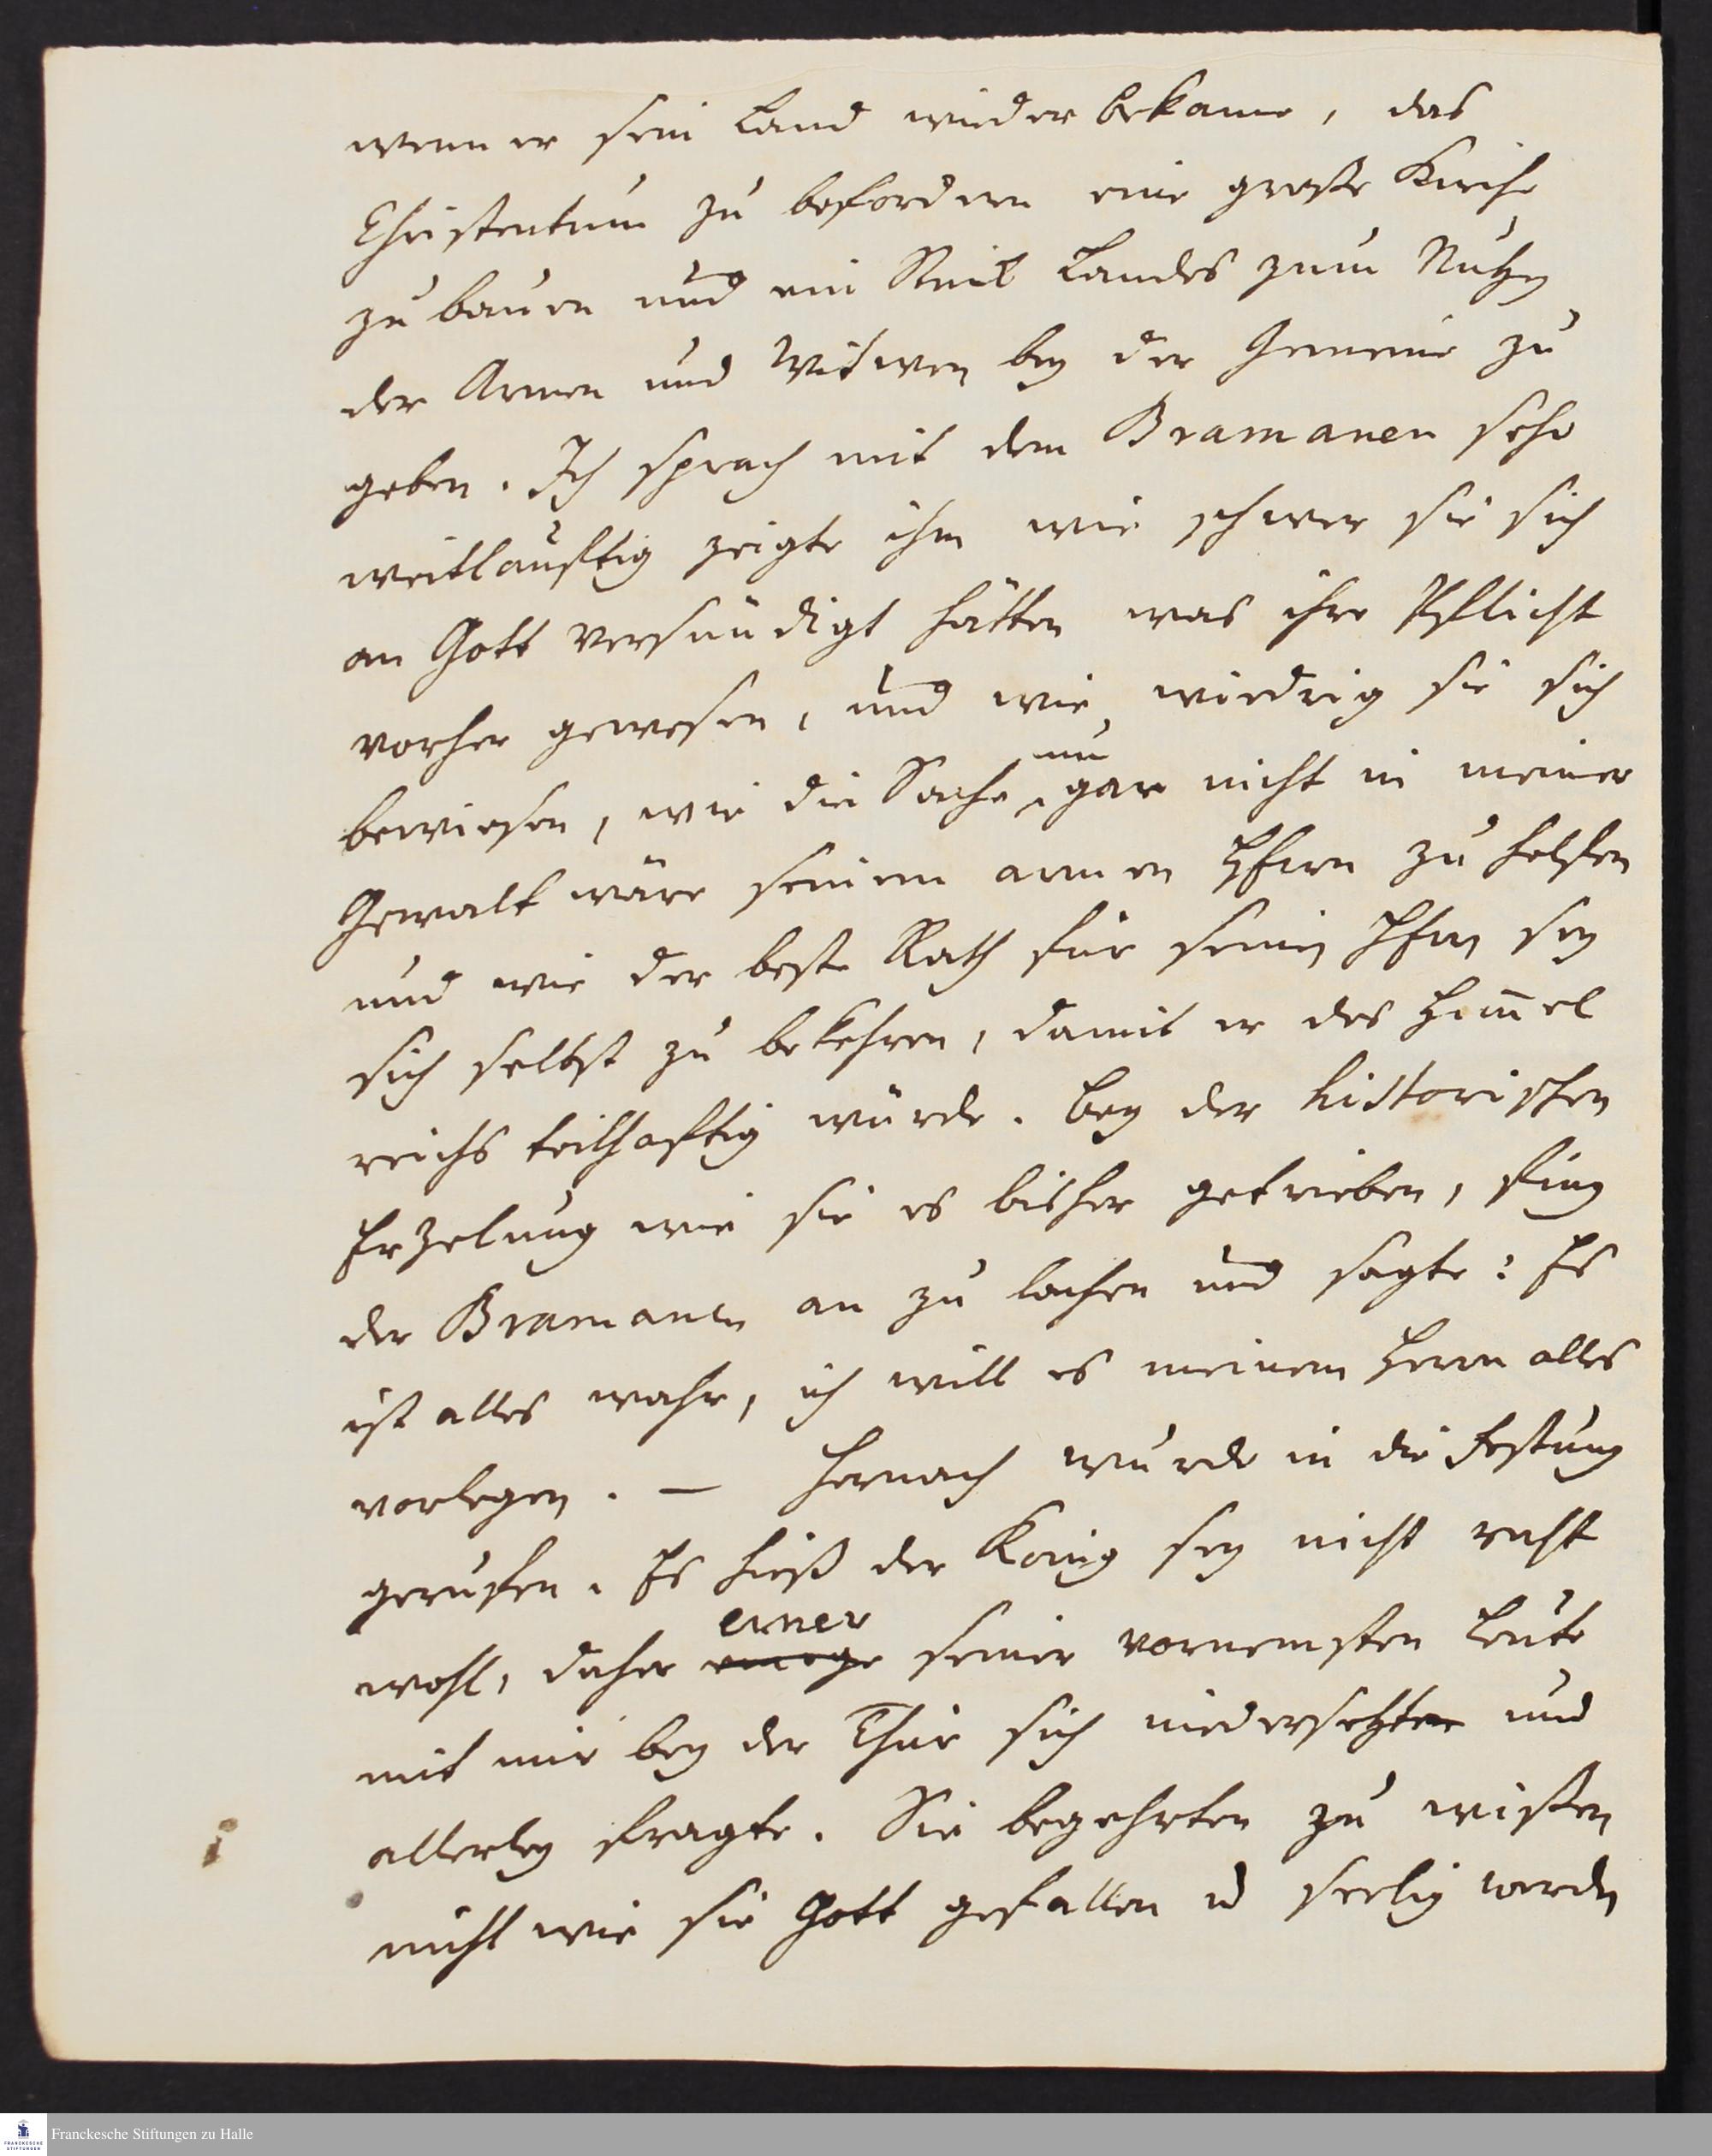 wenn er sein Land wieder bekame, das
Christentum zu befordern eine große Kirche
zu bauen und ein Stük Landes zum Nutzen
der Armen und Witwen bey der Gemeine zu
geben. Ich sprach mit dem Bramanen sehr
weitlauftig zeigte ihm wie schwer sie sich
an Gott versündigt hätten was ihre Pflicht
vorher gewesen, und wie wiedrig sie sich
bewiesen, wie die Sache nun gar nicht in meiner
Gewalt wäre seinem armen Hhern zu helfen
und wie der beste Rath für seinen Hhern sey
sich selbst zu bekehren, damit er des Himmel
reichs teilhaftig würde. bey der historischen
Erzelung wie sie es bisher getrieben, fing
der Bramanen an zu lachen und sagte: Es
ist alles wahr, ich will es meinem Herrn alles
vorlegen. — Hernach wurde in die Festung
gerufen. Es hieß der König sey nicht recht
wohl, daher einige einer seiner vornemsten Leute
mit mir bey der Thür sich niedersetzten und
allerley fragte. Sie begehrten zu wißen
nicht wie sie Gott gefallen u seelig werden
Franckesche Stiftungen zu Halle